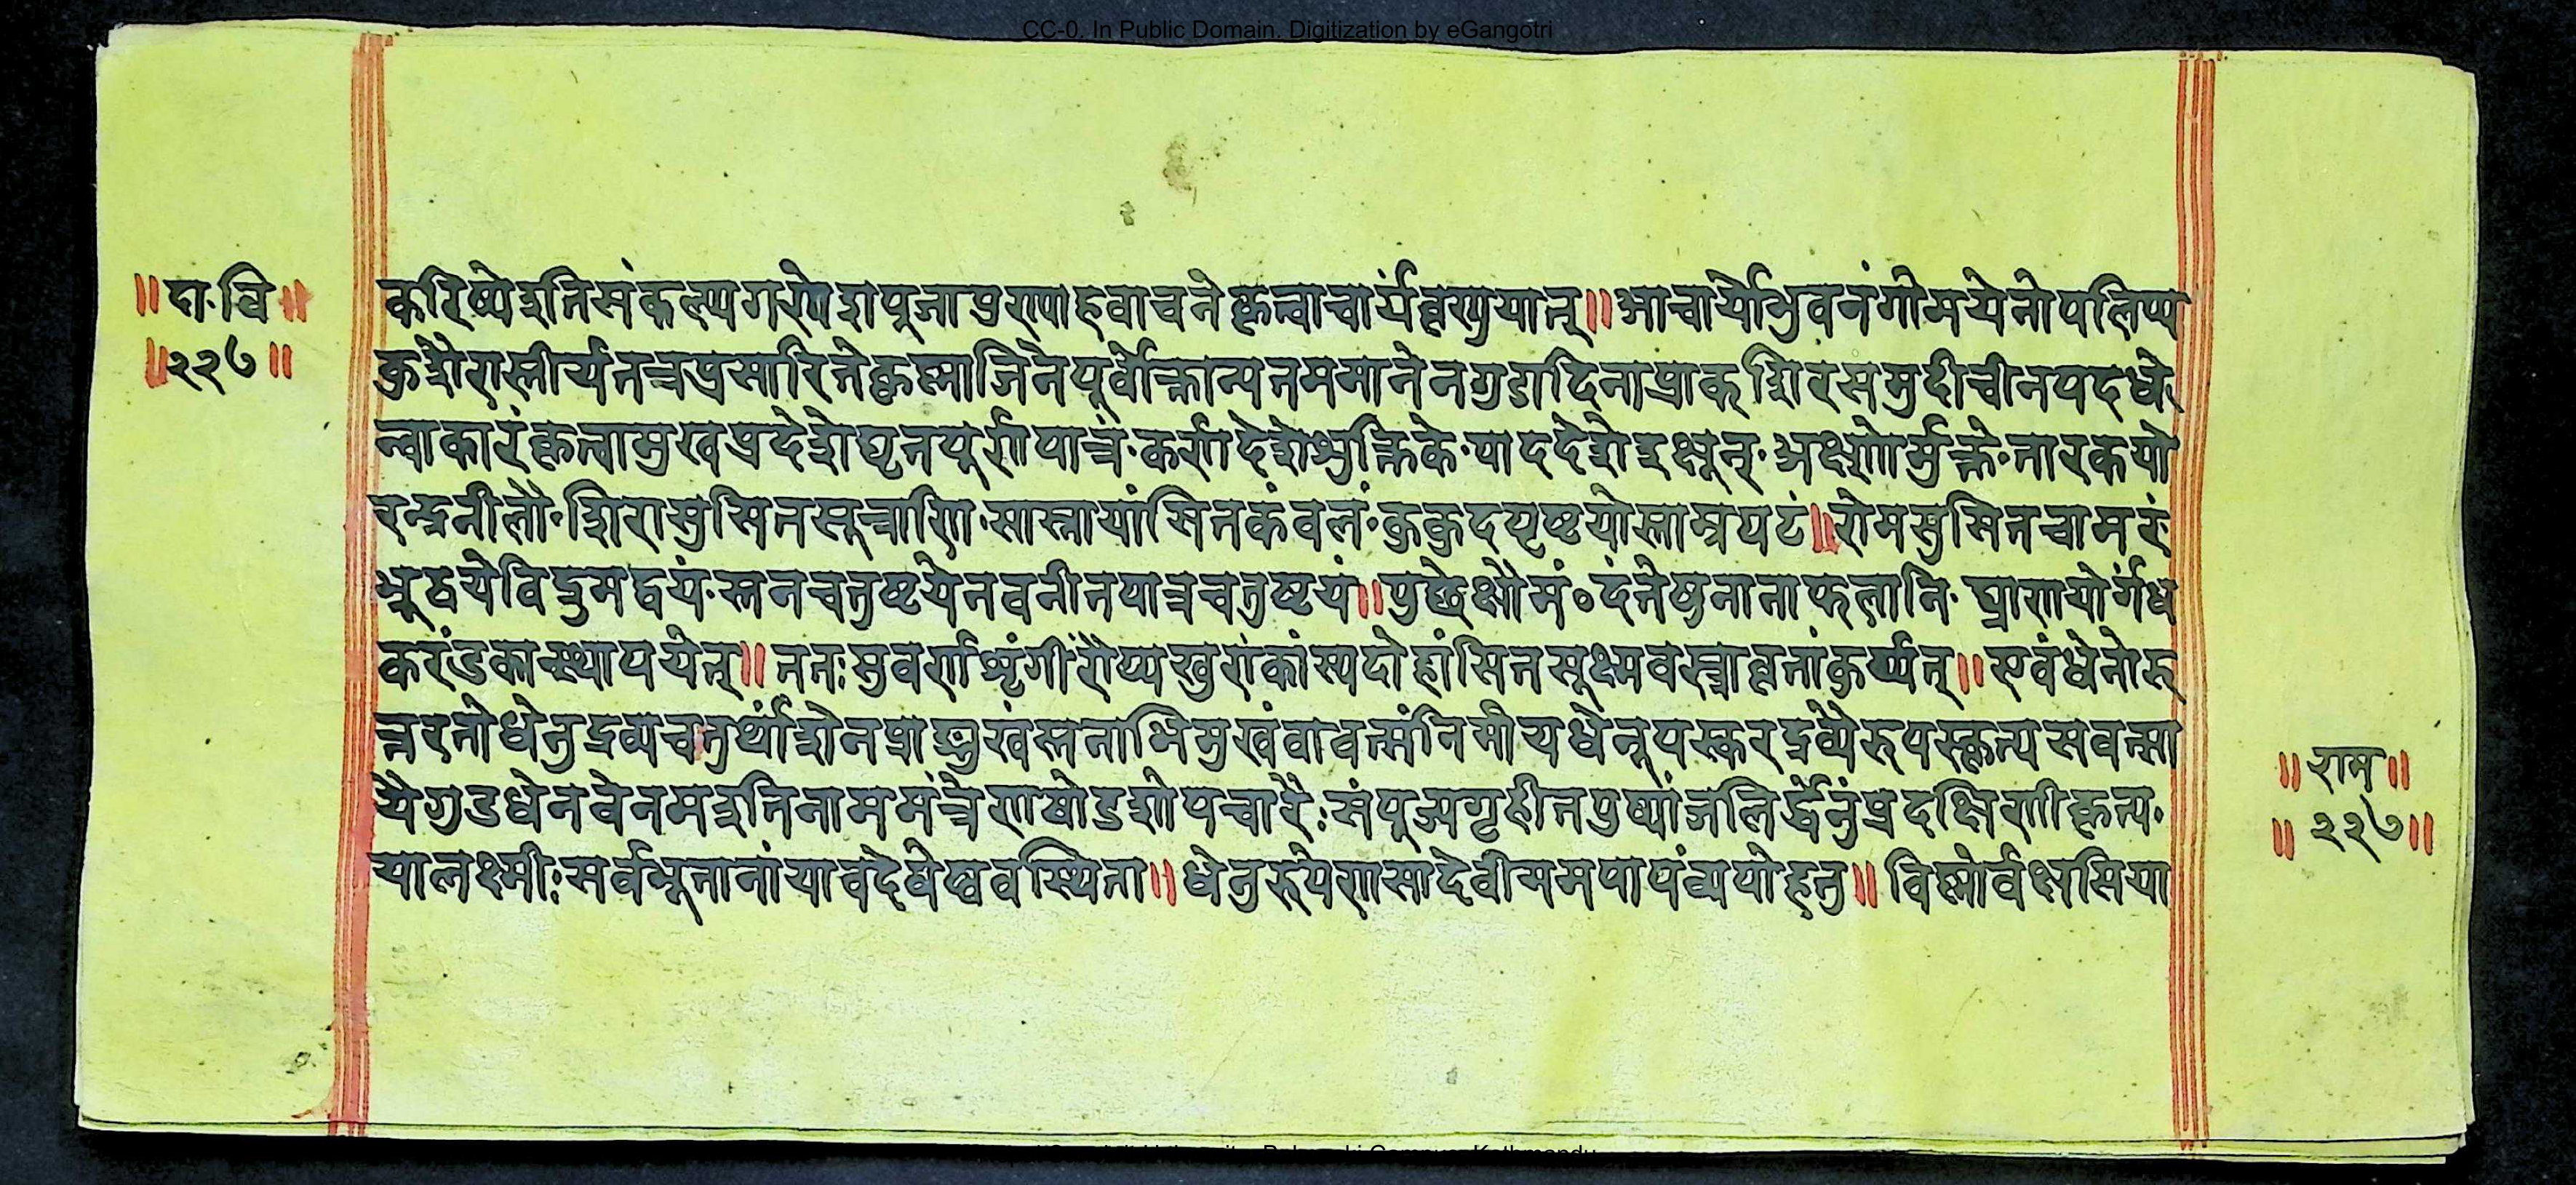 CC-0. In Public Domain. Digitization by eGangotri
॥दा.वि॥
॥२२७॥
करिष्ये इति संकल्प्य गणेशपूजापुण्याहवाचने कृत्वाचार्यं वृणुयात्॥ आचार्यो भुवनं गोमयेनोपलिप्य
कुशैरास्तीर्य तत्र प्रसारिते कृष्णाजिने पूर्वोक्तान्यतममानेन गुडादिना प्राक् शिरसमुदीचीनपदधे
न्वाकारं कृत्वा मुखप्रदेशे घृतपूर्णपात्रं. कर्णदेशे शुक्तिके. पाददेशे इक्षून्. अक्ष्णोर्मुक्ते. तारकयो
रन्द्रनीलौ. शिरासु सितसूत्राणि. सास्नायां सितकंवलं. कुकुदपृष्टयोस्ताम्रपटं॥ रोमसु सितचामरं
भ्रूद्वये विद्रुमद्वयं. स्तनचतुष्टये नवनीतपात्रचतुष्टयं॥ पुछे क्षौमं० दंतेषु नानाफलानि. घ्राणयोर्गंध
करंडकान्स्थापयेत्॥ ततः सुवर्णशृंगीं रौप्यखुरां कांस्यदोहां सितसूक्ष्मवस्त्रावृतां कुर्य्यत्॥ एवं धेनोरु
त्तरतो धेनुद्रव्यचतुर्थांशेन प्राङ्मुखं स्तनाभिमुखं वा वत्सं निर्मीय धेनूपस्करद्रव्यैरुपस्कृत्य सवत्सा
यै गुडधेनवे नम इति नाममंत्रेण षोडशोपचारैः संपूज्य गृहीतपुष्पांजलिर्द्धेनुं प्रदक्षिणीकृत्य.
या लक्ष्मीः सर्वभूतानां या च देवेष्ववस्थिता॥ धेनुरुपेण सा देवी मम पापं व्यपोहतु॥ विष्णोर्वक्षसि या
॥राम॥
॥२२७॥